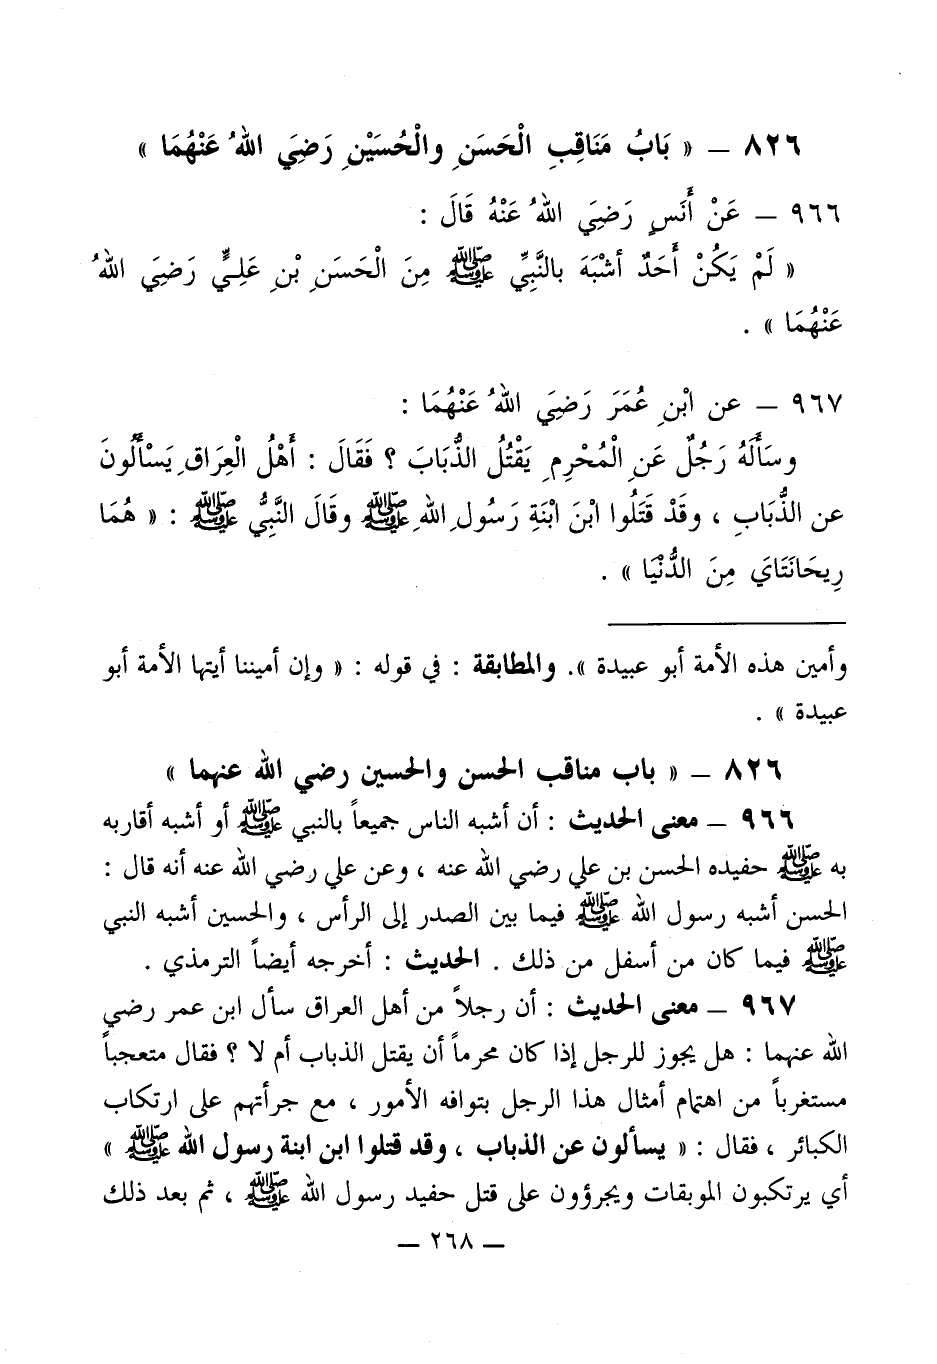 ٨٢٦ – « بَابُ مَنَاقِبِ الْحَسَنِ والْحُسَيْنِ رَضِيَ اللهُ عَنْهُمَا »
٩٦٦ – عَنْ أَنَسٍ رَضِيَ اللهُ عَنْهُ قَالَ :
« لَمْ يَكُنْ أَحَدٌ أَشْبَهَ بالنَّبِيِّ ﷺ مِنَ الْحَسَنِ بْنِ عَلِيٍّ رَضِيَ اللهُ
عَنْهُمَا » .
٩٦٧ – عن ابْنِ عُمَرَ رَضِيَ اللهُ عَنْهُمَا :
وسَأَلَهُ رَجُلٌ عَنِ الْمُحْرِمِ يَقْتُلُ الذُّبَابَ ؟ فَقَالَ : أَهْلُ الْعِرَاقِ يَسْأَلُونَ
عن الذُّبَابِ ، وقَدْ قَتَلُوا ابْنَ ابْنَةِ رَسُولِ اللهِ ﷺ وقَالَ النَّبِيُّ ﷺ : « هُمَا
رِيحَانَتَايَ مِنَ الدُّنْيَا » .
وأمين هذه الأمة أبو عبيدة ». والمطابقة : في قوله : « وإن أميننا أيتها الأمة أبو
عبيدة » .
٨٢٦ – « باب مناقب الحسن والحسين رضي الله عنهما »
٩٦٦ – معنى الحديث : أن أشبه الناس جميعاً بالنبي ﷺ أو أشبه أقاربه
به ﷺ حفيده الحسن بن علي رضي الله عنه ، وعن علي رضي الله عنه أنه قال :
الحسن أشبه رسول الله ﷺ فيما بين الصدر إلى الرأس ، والحسين أشبه النبي
ﷺ فيما كان من أسفل من ذلك . الحديث : أخرجه أيضاً الترمذي .
٩٦٧ – معنى الحديث : أن رجلاً من أهل العراق سأل ابن عمر رضي
الله عنهما : هل يجوز للرجل إذا كان محرماً أن يقتل الذباب أم لا ؟ فقال متعجباً
مستغرباً من اهتمام أمثال هذا الرجل بتوافه الأمور ، مع جرأتهم على ارتكاب
الكبائر ، فقال : « يسألون عن الذباب ، وقد قتلوا ابن ابنة رسول الله ﷺ »
أي يرتكبون الموبقات ويجرؤون على قتل حفيد رسول الله ﷺ ، ثم بعد ذلك
– ٢٦٨ –